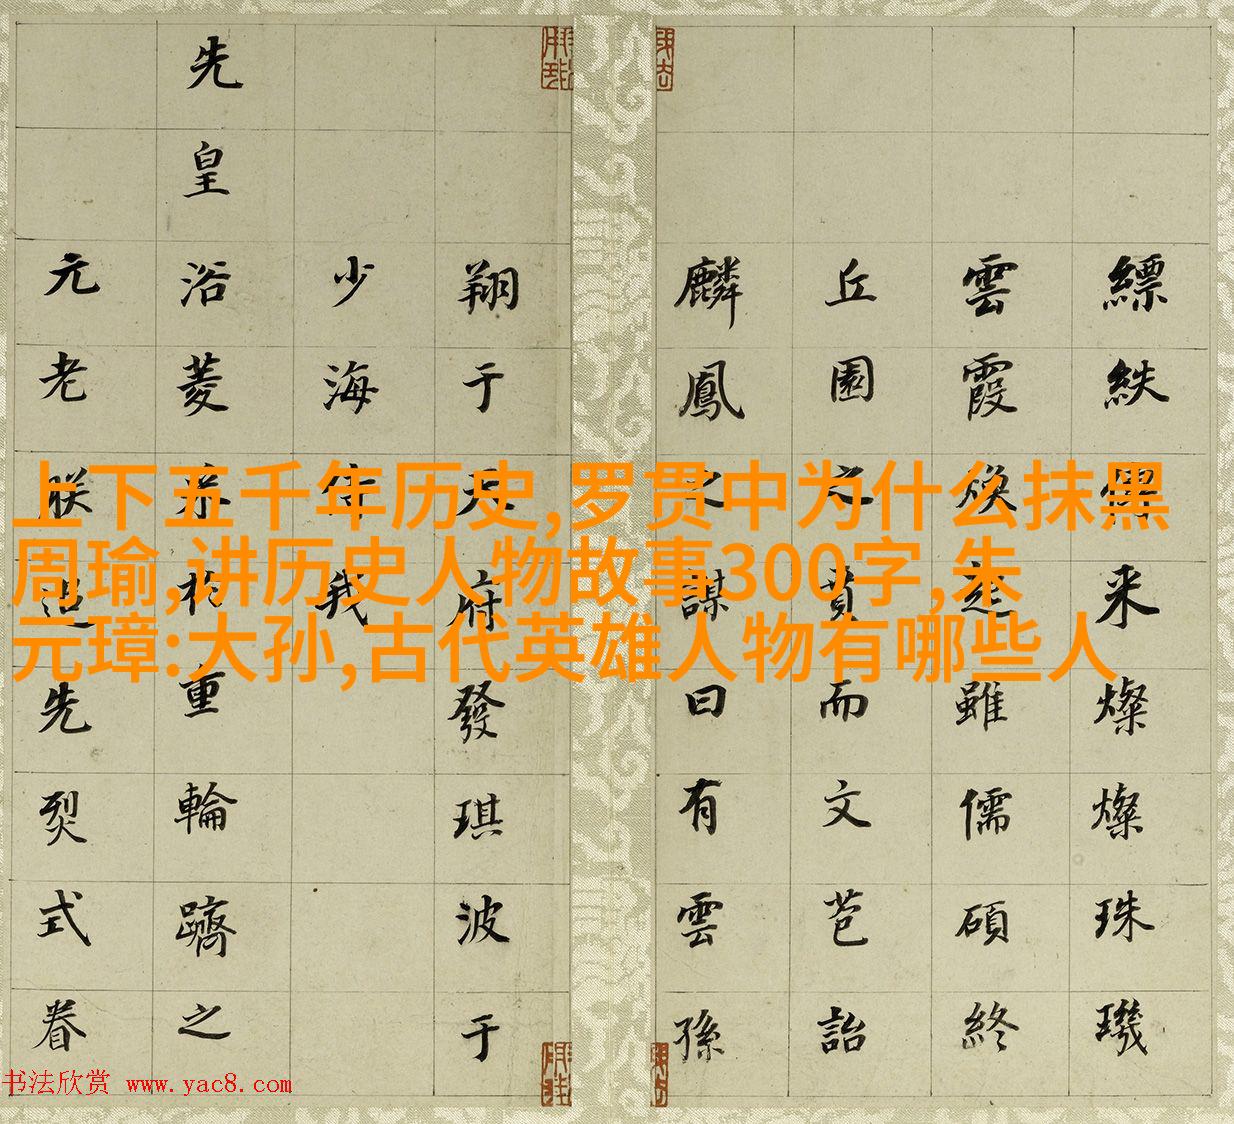 上下五千年历史,罗贯中为什么抹黑
周瑜,讲历史人物故事300字,朱
元璋:大孙,古代英雄人物有哪些人
縹紩来燦燦珠璣
雲霞煥定雖儒碩終
丘園之賁而文苞詒
麟鳳之謀曰有雲孫
翔于天府發琪波于
少海侍我
先皇浴菱重輪躋之
元老朕追先烈式眷
书法欣赏 www.yac8.com